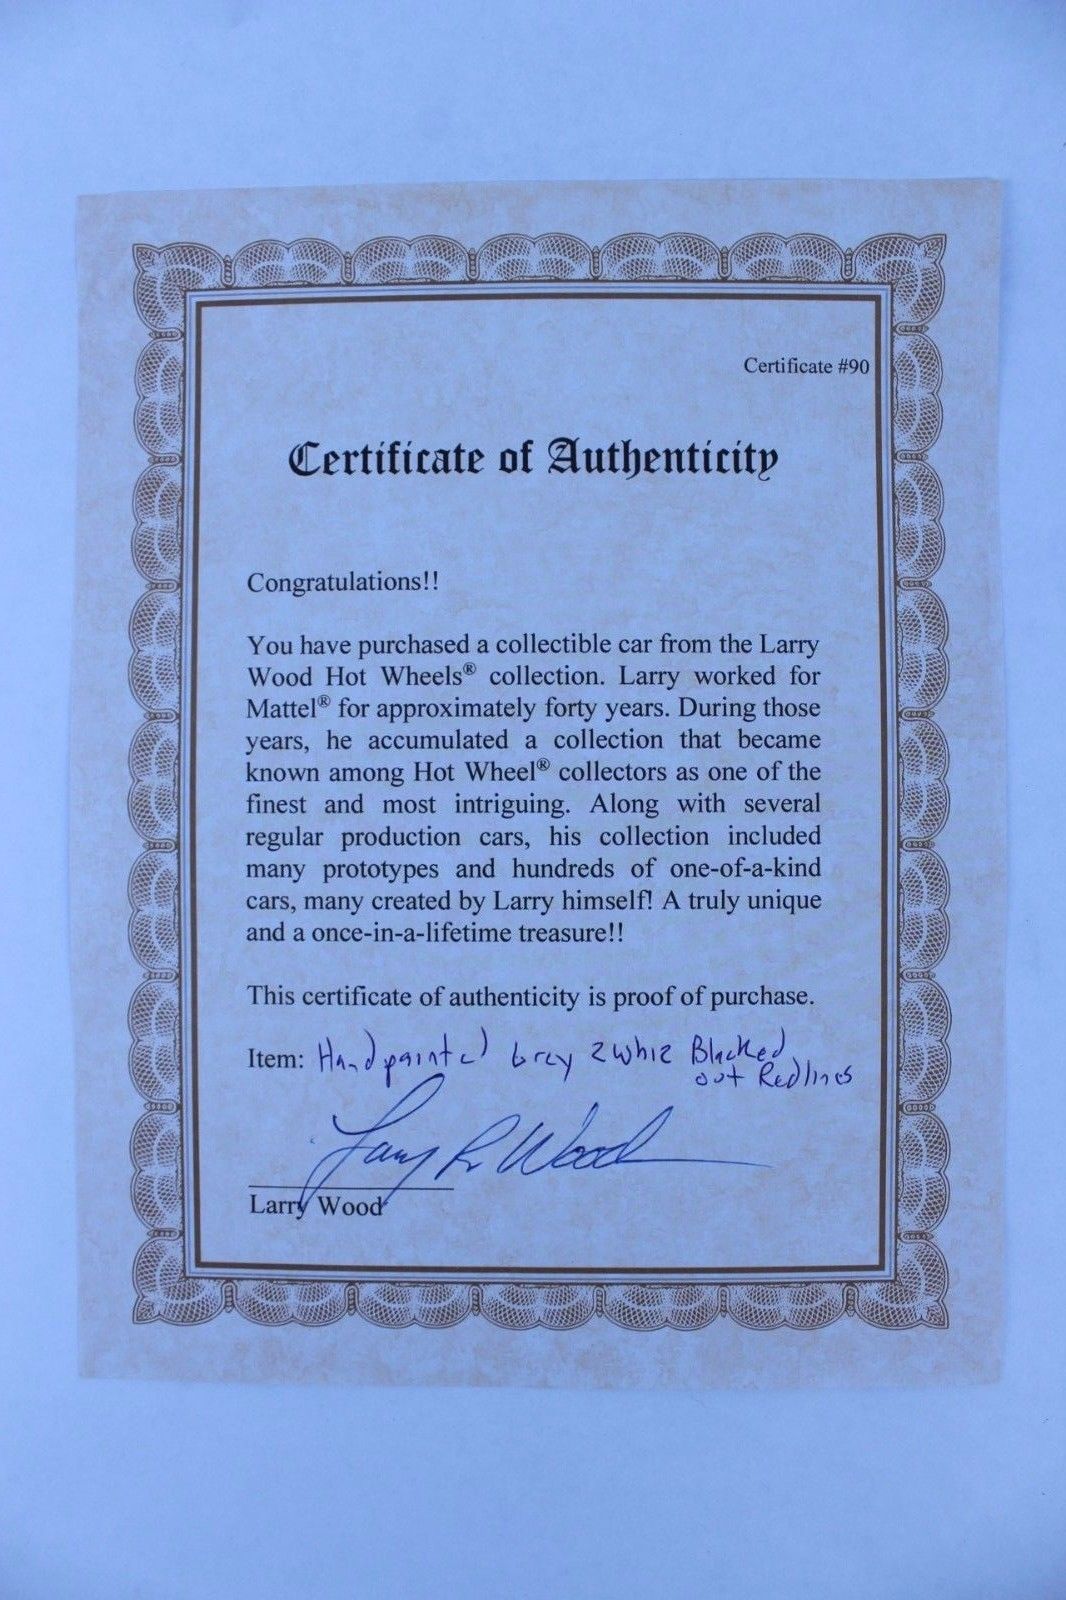 Certificate #90
Certificate of Authenticity
Congratulations!!
You have purchased a collectible car from the Larry
Wood Hot Wheels® collection. Larry worked for
Mattel® for approximately forty years. During those
years, he accumulated a collection that became
known among Hot Wheel® collectors as one of the
finest and most intriguing. Along with several
regular production cars, his collection included
many prototypes and hundreds of one-of-a-kind
cars, many created by Larry himself! A truly unique
and a once-in-a-lifetime treasure!!
This certificate of authenticity is proof of purchase.
Item: Handpainted Grey 2whiz Blacked
out Redlines
Larry R Wood
Larry Wood